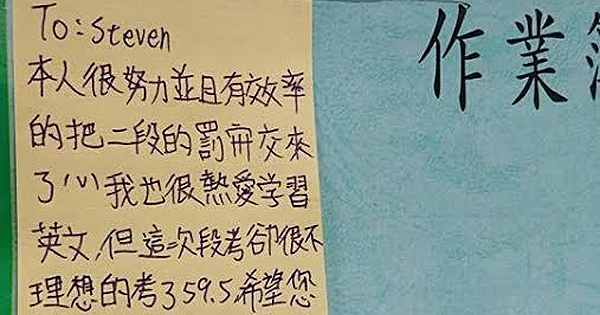 To:Steven
本人很努力並且有效率
的把二段的罰寫交來
了 我也很熱愛学習
英文,但這次段考卻很不
理想的考了59.5,希望您
作業